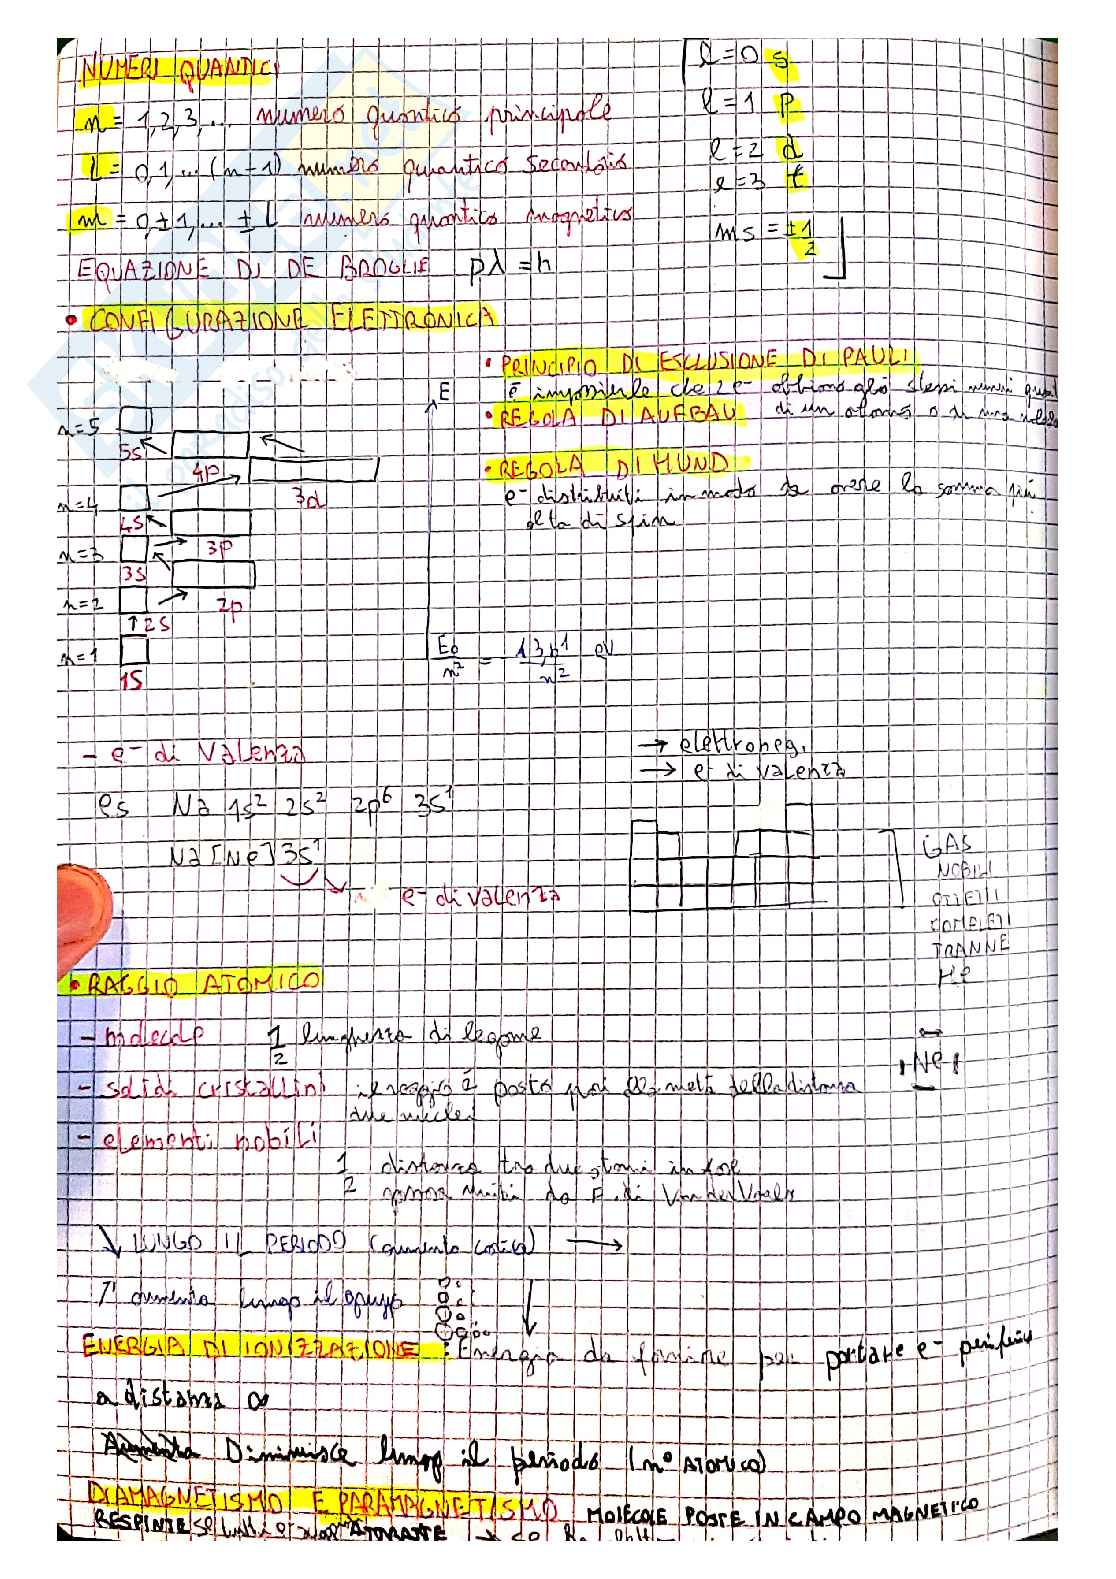 NUMERI QUANTICI
n = 1,2,3,... numero quantico principale
l = 0,1,...(n-1) numero quantico secondario
m = 0,±1,...±L numero quantico magnetico
l=0 s
l=1 p
l=2 d
l=3 f
ms = ±1/2
EQUAZIONE DI DE BROGLIE pλ = h
• CONFIGURAZIONE ELETTRONICA
• PRINCIPIO DI ESCLUSIONE DI PAULI
è impossibile che 2 e- abbiano gli stessi numeri
• REGOLA DI AUFBAU di un atomo o di una
• REGOLA DI HUND
e- distribuiti in modo da avere la somma più
alta di spin
E
n=5
5s
4p
n=4
3d
4s
n=3
3p
3s
n=2
2p
↑ 2s
n=1
1s
E0/n² = 13,6/n² eV
- e- di Valenza
es Na 1s² 2s² 2p⁶ 3s¹
Na [Ne] 3s¹
e- di valenza
→ elettroneg.
→ e- di valenza
GAS
NOBILI
OTTETTI
COMPLETI
TRANNE
He
• RAGGIO ATOMICO
- molecole 1/2 lunghezza di legame
- solidi cristallini il raggio è posto pari alla metà della distanza
due nuclei
- elementi nobili
1/2 distanza tra due atomi in
uniti da F. di Van der Waals
Ne
↓ LUNGO IL PERIODO (aumento carica) →
↑ aumenta lungo il gruppo ↓
ENERGIA DI IONIZZAZIONE : Energia da fornire per portare e- periferico
a distanza ∞
Aumenta Diminuisce lungo il periodo (n° ATOMICO)
DIAMAGNETISMO E PARAMAGNETISMO MOLECOLE POSTE IN CAMPO MAGNETICO
RESPINTE se tutti